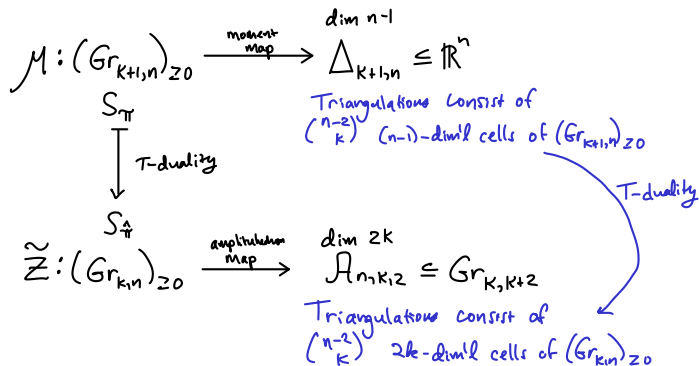 dim n-1
μ : (Gr_{k+1,n})_{≥0} moment map Δ_{k+1,n} ⊆ ℝ^n
S_π
Triangulations consist of
\binom{n-2}{k} (n-1)-dim'l cells of (Gr_{k+1,n})_{≥0}
T-duality
T-duality
S_{\hat{π}}
dim 2k
\tilde{Z} : (Gr_{k,n})_{≥0} amplituhedron map A_{n,k,2} ⊆ Gr_{k,k+2}
Triangulations consist of
\binom{n-2}{k} 2k-dim'l cells of (Gr_{k,n})_{≥0}